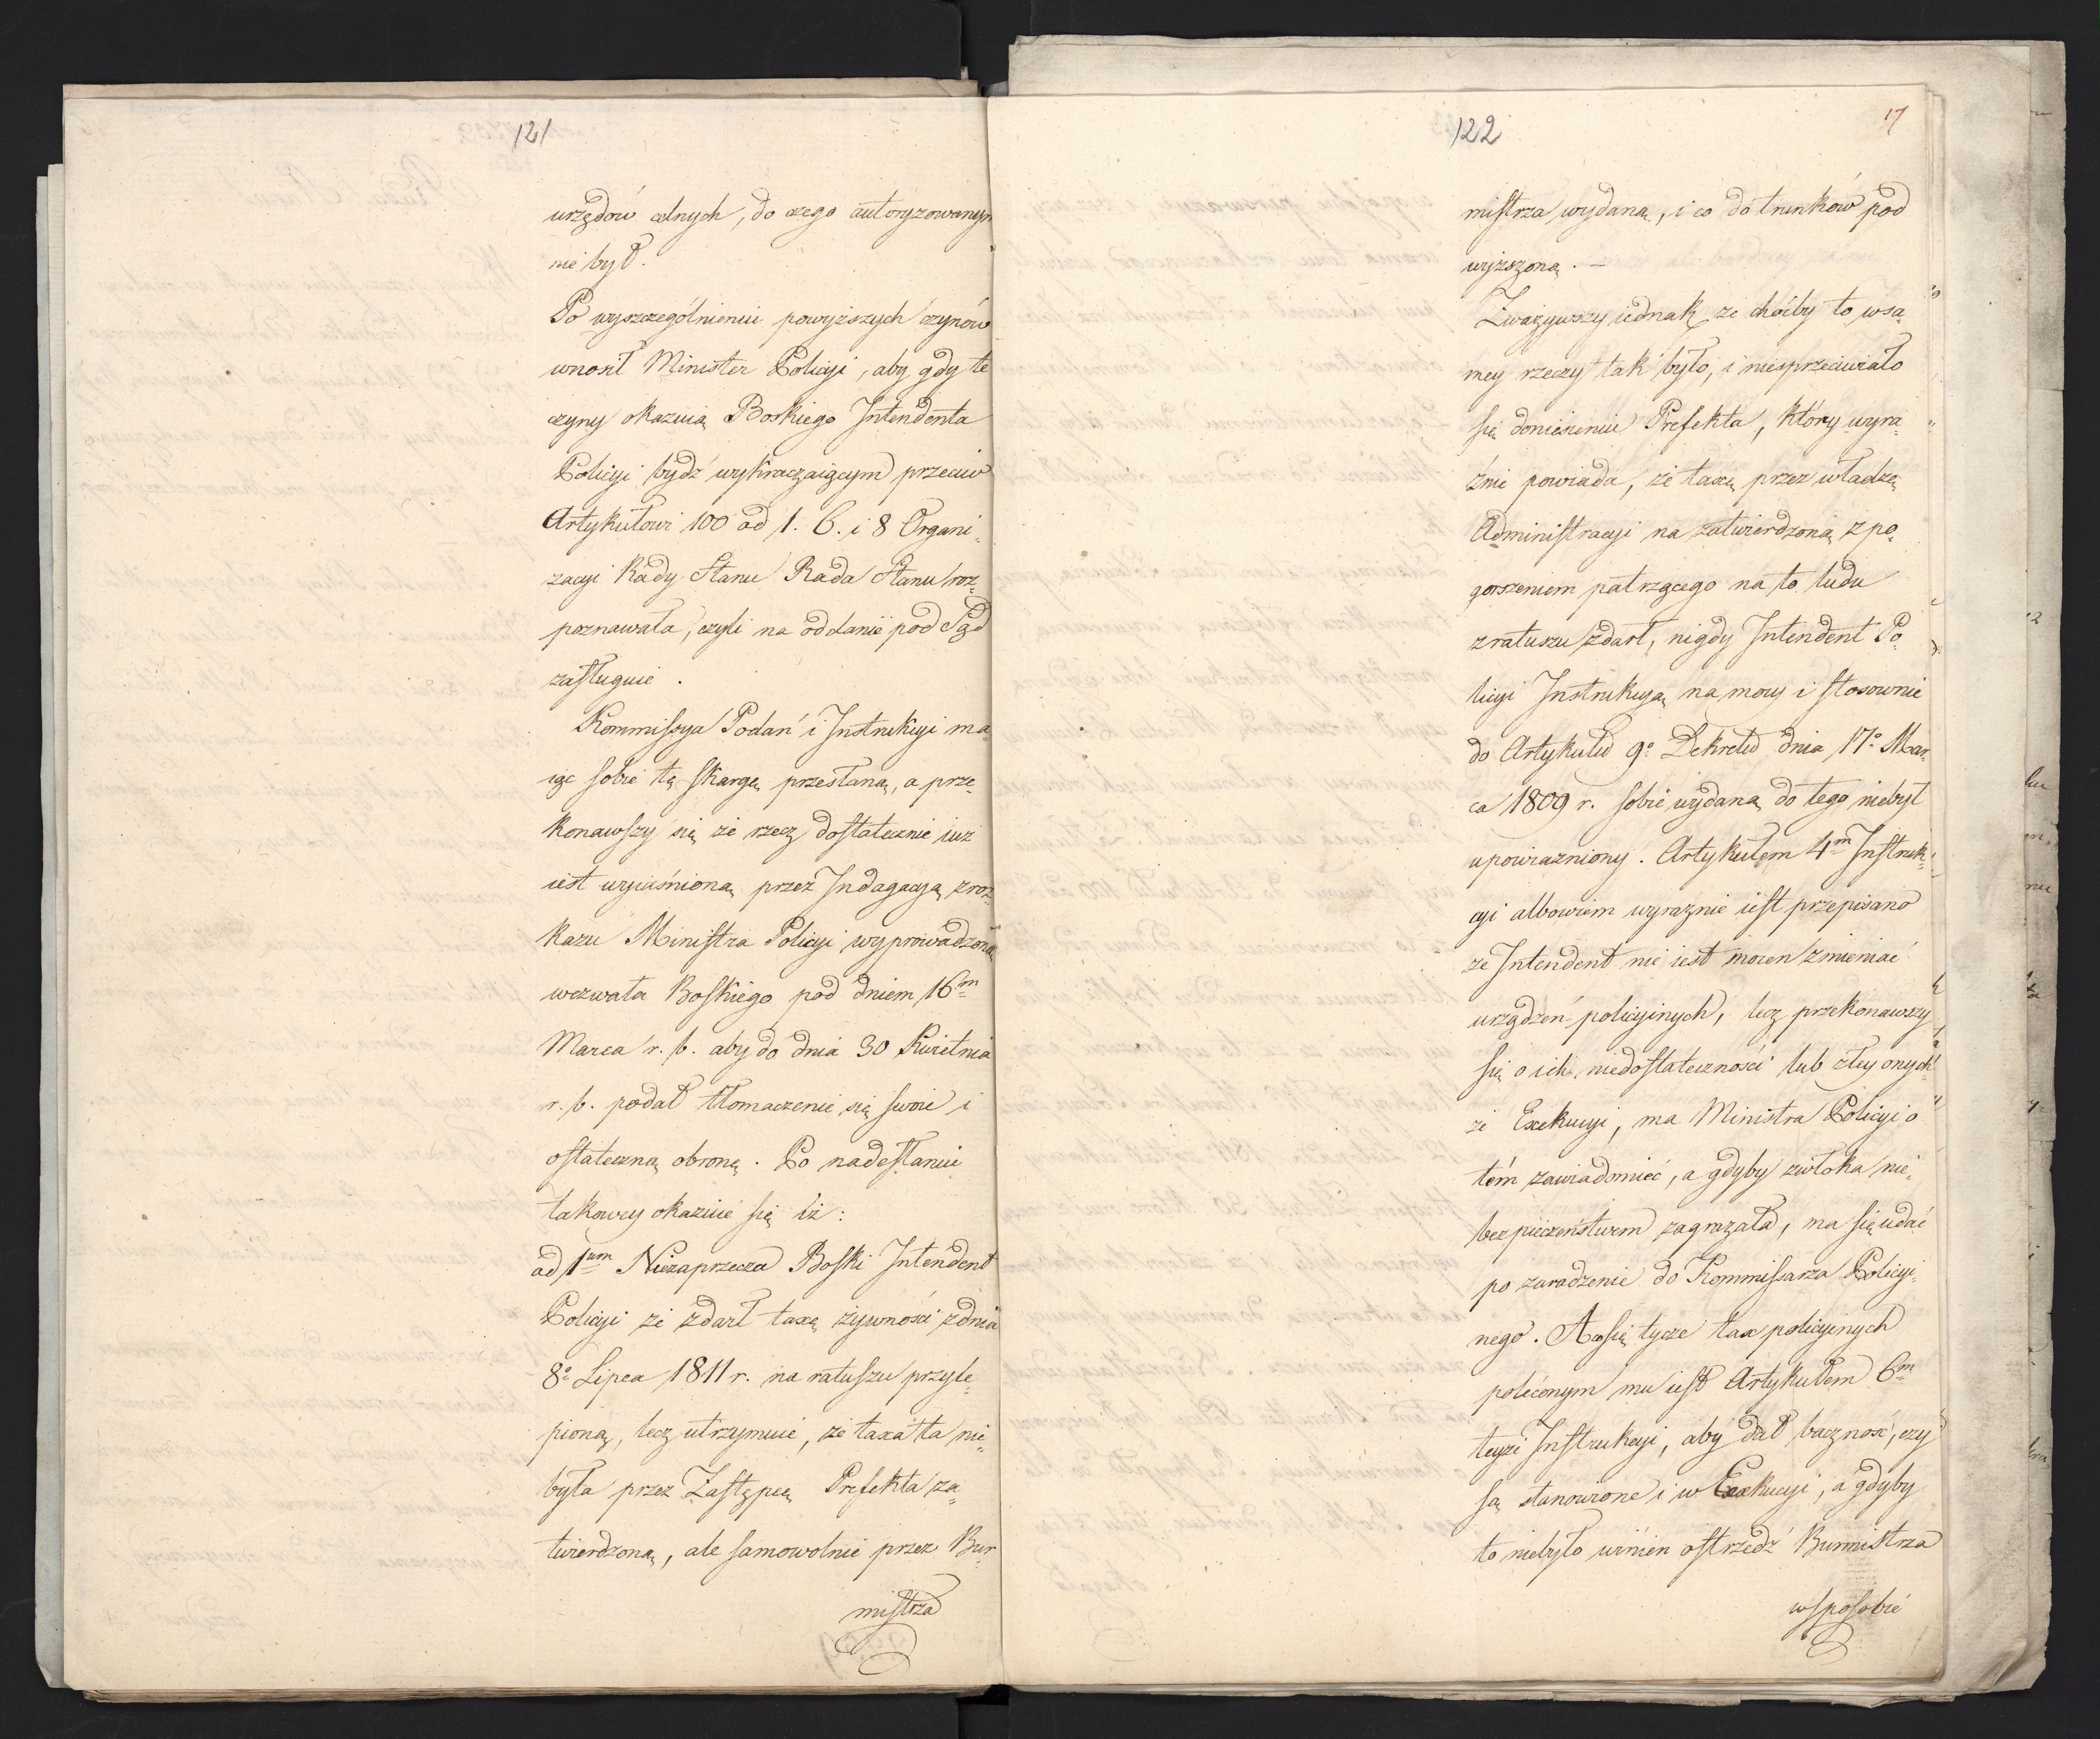 121
urzędów celnych, do czego autoryzowanym
nie był.
Po wyszczególnieniu powyższych czynów
wnosił Minister Policyi, aby gdy te
czyny okazuią Boskiego Intendenta
Policyi bydź wykraczaiącym przeciw
Artykułowi 100 ad 1. 6. i 8 Organi„
zacyi Rady Stanu Rada Stanu roz„
poznawała, czyli na oddanie pod Sąd
zasługuie.
Kommissya Podań i Instrukcyi ma„
iąc sobie tę skargę przesłaną, a prze„
konawszy się że rzecz dostatecznie iuż
iest wyiaśnioną przez Indagacyą z roz„
kazu Ministra Policyi wyprowadzoną
wezwała Boskiego pod dniem 16m
Marca r. b. aby do dnia 30 Kwietnia
r. b. podał tłomaczenie się swoie i
ostateczną obronę. Po nadesłaniu
takowey okazuie się iż:
ad 1um Niezaprzecza Boski Intendent
Policyi że zdarł taxę żywności z dnia
8o Lipca 1811 r. na ratuszu przyle„
pioną, lecz utrzymuie, że taxa ta nie„
była przez Zastępcę Prefekta za„
twierdzoną, ale samowolnie przez Bur„
mistrza
122
17
mistrza wydaną, i co do trunków pod
wyższoną. —
Zważywszy iednak że chóćby to w sa„
mey rzeczy tak było, i niesprzeciwiało
się doniesieniu Prefekta, który wyra„
źnie powiada, że taxę przez władzę
Administracyi na zatwierdzoną z po„
gorszeniem patrzącego na to ludu
z ratuszu zdarł, nigdy Intendent Po„
licyi Instrukcyą na mocy i stosownie
do Artykułu 9o Dekretu dnia 17o Mar„
ca 1809 r. sobie wydaną do tego niebył
upoważniony. Artykułem 4m Instruk„
cyi albowiem wyraźnie iest przepisano
że Intendent nie iest mocen zmieniać
urządzeń policyinych, lecz przekonawszy
się o ich niedostateczności lub złey onych
że Exekucyi, ma Ministra Policyi o
tém zawiadomić, a gdyby zwłoka nie„
bezpieczeństwem zagrażała, ma się udać
po zaradzenie do Kommissarza Policyi„
nego. A co się tycze tax policyinych
poleconym mu iest Artykułem 6m
teyże Instrukcyi, aby dał baczność, czy
są stanowione i w Exekucyi, a gdyby
to niebyło winien ostrzedz Burmistrza
w sposobie